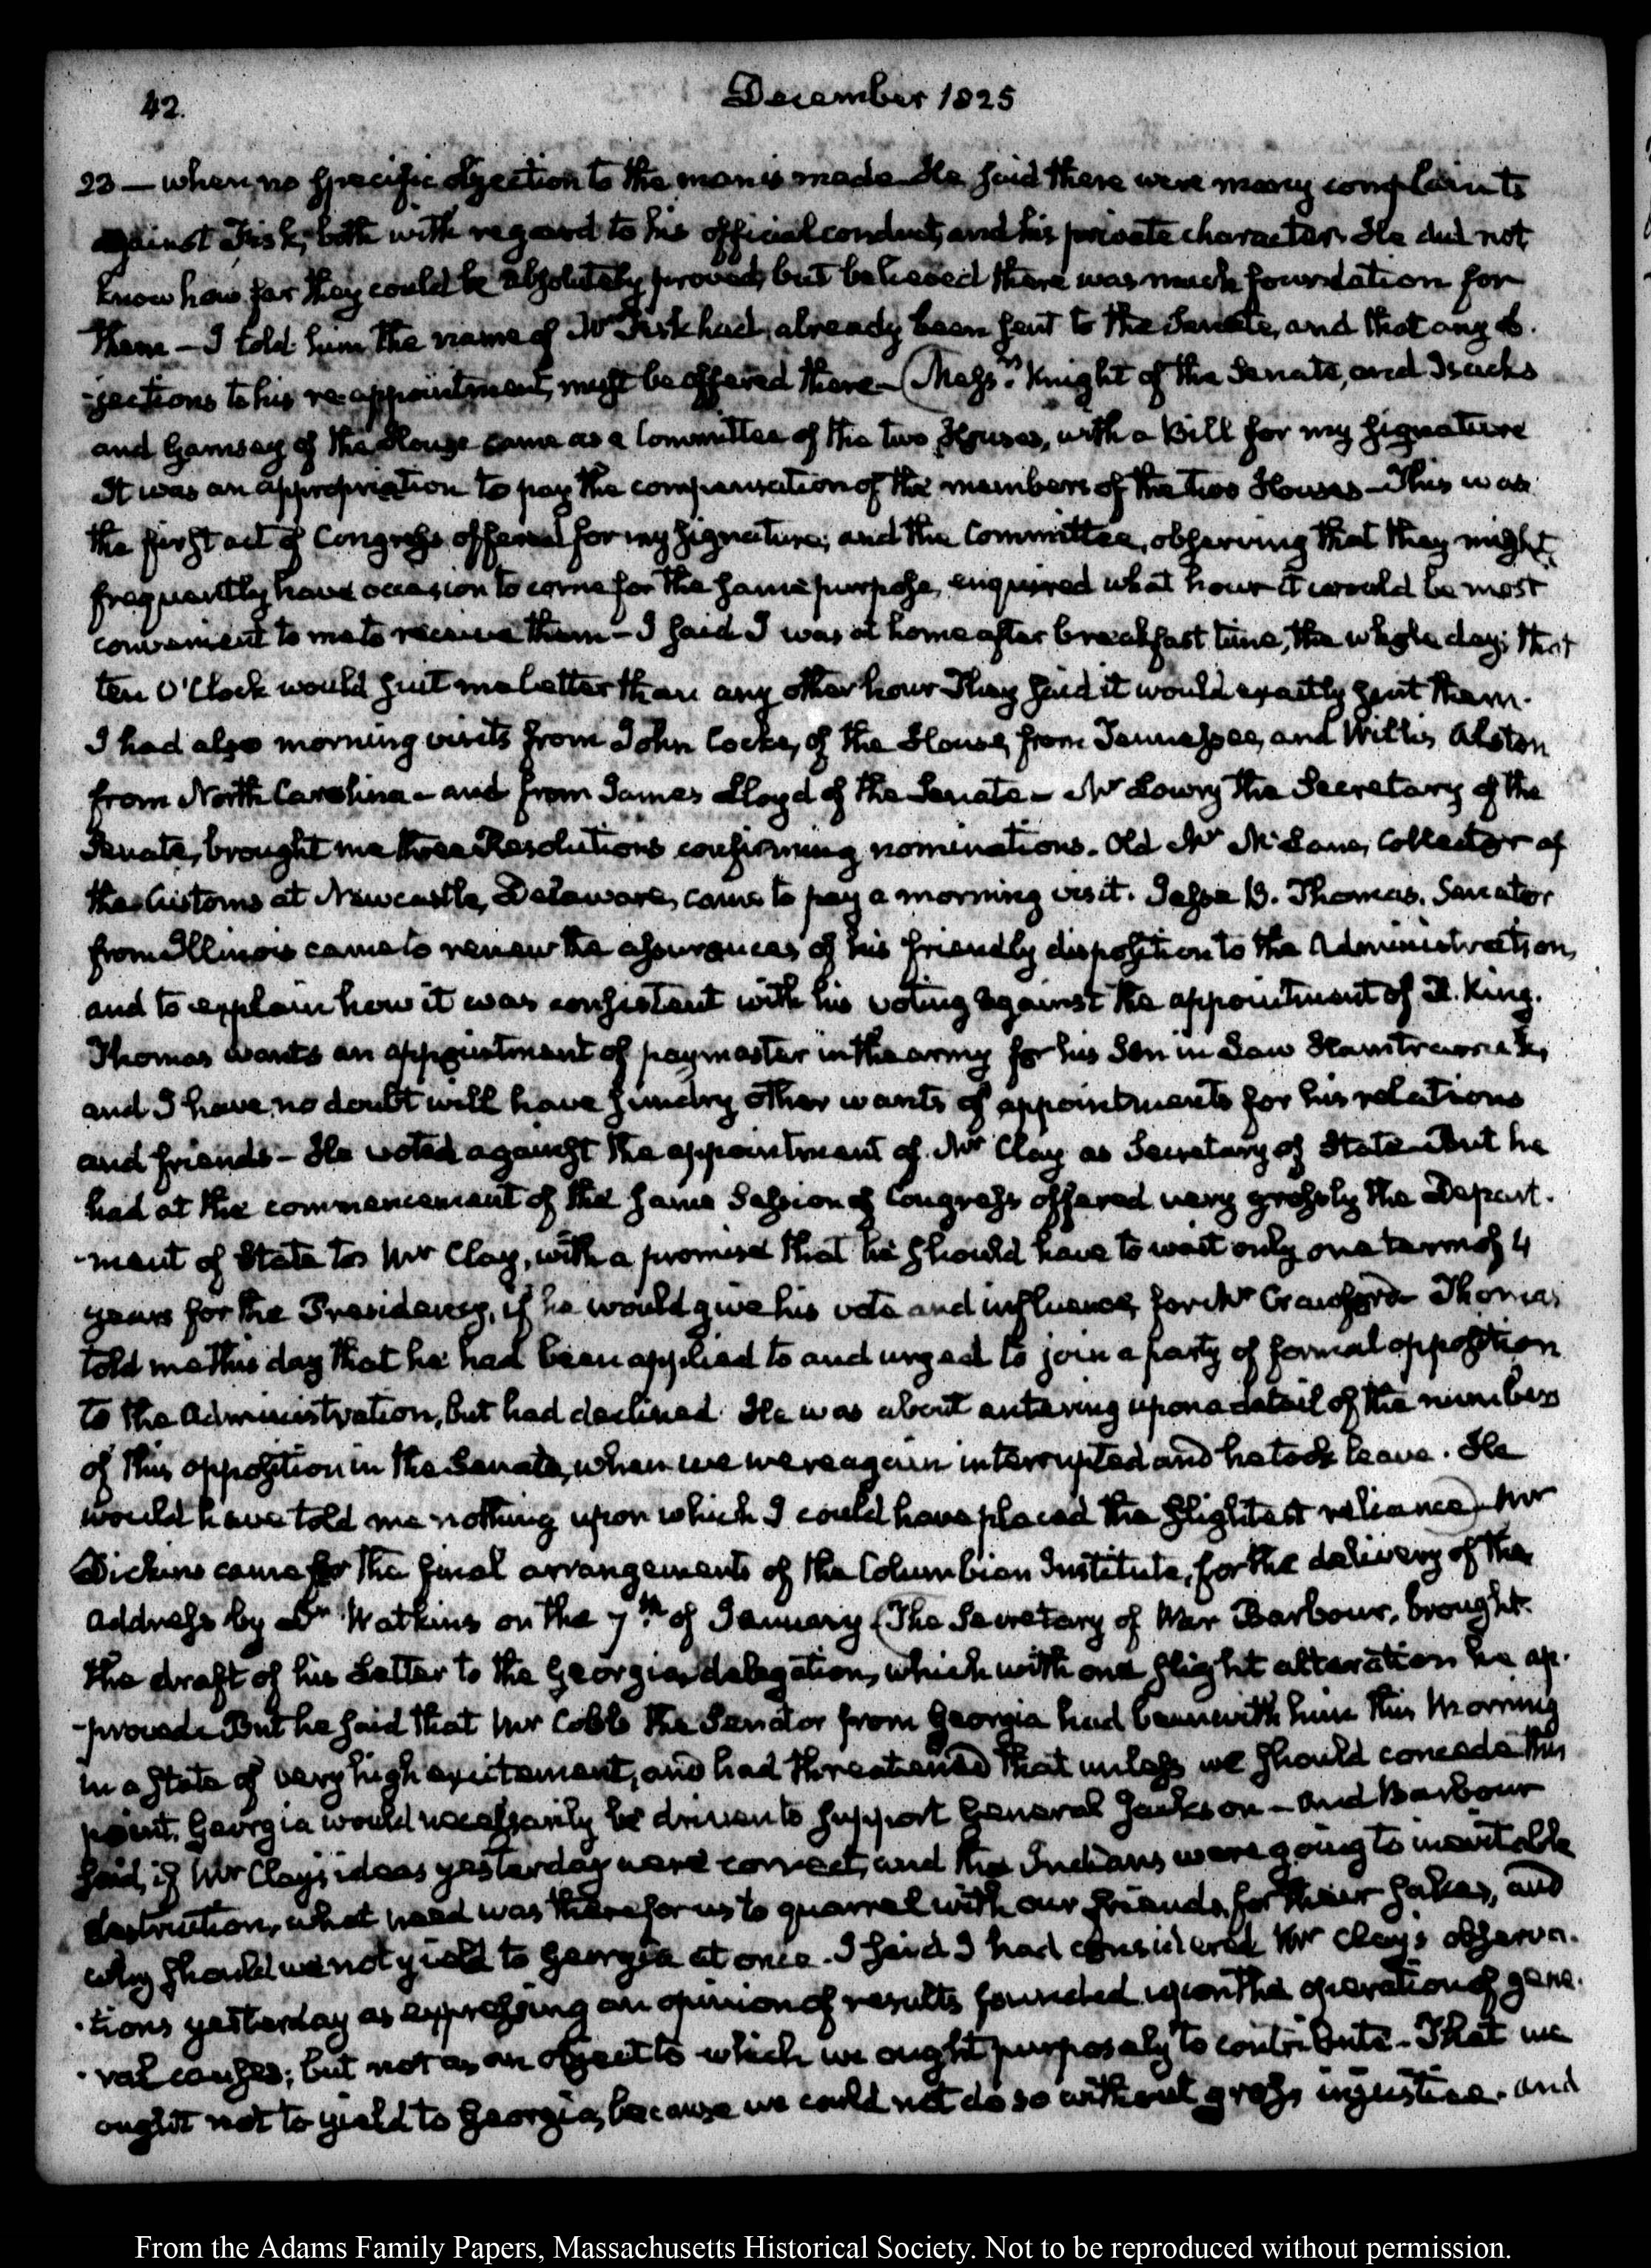 42.
December 1825
23 — when no specific objection to the man is made He said there were many complaints
against Fisk, both with regard to his official conduct, and his private character. He did not
know how far they could be absolutely proved, but believed there was much foundation for
them – I told him the name of Mr Fisk had already been sent to the Senate, and that any ob-
-jections to his re-appointment, must be offered there – (Messrs. Knight of the Senate, and Isacks
and Garnsey of the House came as a Committee of the two Houses, with a Bill for my signature
It was an appropriation to pay the compensation of the members of the two Houses – This was
the first act of Congress offered for my signature; and the Committee, observing that they might
frequently have occasion to come for the same purpose, enquired what hour it would be most
convenient to me to receive them – I said I was at home after breakfast time, the whole day; that
ten O'Clock would suit me better than any other hour They said it would exactly suit them.
I had also morning visits from John Cocke, of the House, from Tennessee, and Willis Alston
from North Carolina – and from James Lloyd of the Senate – Mr Lowry the Secretary of the
Senate, brought me three Resolutions confirming nominations. Old Mr McLane, Collector of
the Customs at Newcastle, Delaware, came to pay a morning visit. Jesse B. Thomas, Senator
from Illinois came to renew the assurances of his friendly disposition to the Administration,
and to explain how it was consistent with his voting against the appointment of R. King.
Thomas wants an appointment of paymaster in the army for his Son in Law Hamtramck,
and I have no doubt will have sundry other wants of appointments for his relations
and friends – He voted against the appointment of Mr Clay as Secretary of State – But he
had at the commencement of the same Session of Congress offered very grossly the Depart-
-ment of State to Mr Clay, with a promise that he should have to wait only one term of 4
years for the Presidency, if he would give his vote and influence, for Mr Crawford – Thomas
told me this day that he had been applied to and urged to join a party of formal opposition
to the Administration, but had declined. He was about entering upon a detail of the numbers
of this opposition in the Senate, when we were again interrupted and he took leave. He
would have told me nothing upon which I could have placed the slightest reliance) – Mr
Dickins came for the final arrangements of the Columbian Institute, for the delivery of the
address by Dr Watkins on the 7th of January (The Secretary of War Barbour, brought
the draft of his Letter to the Georgia delegation, which with one slight alteration he ap-
-proved – But he said that Mr Cobb the Senator from Georgia had been with him this Morning
in a State of very high excitement, and had threatened that unless we should concede this
point, Georgia would necessarily be driven to support General Jackson – and Barbour
said, if Mr Clay's ideas yesterday were correct, and the Indians were going to inevitable
destruction, what need was there for us to quarrel with our friends, for their sakes, and
why should we not yield to Georgia at once. I said I had considered Mr Clay's observa-
-tions yesterday as expressing an opinion of results founded upon the operation of gene-
-ral causes; but not as an object to which we ought purposely to contribute – That we
ought not to yield to Georgia, because we could not do so without gross injustice. and
From the Adams Family Papers, Massachusetts Historical Society. Not to be reproduced without permission.